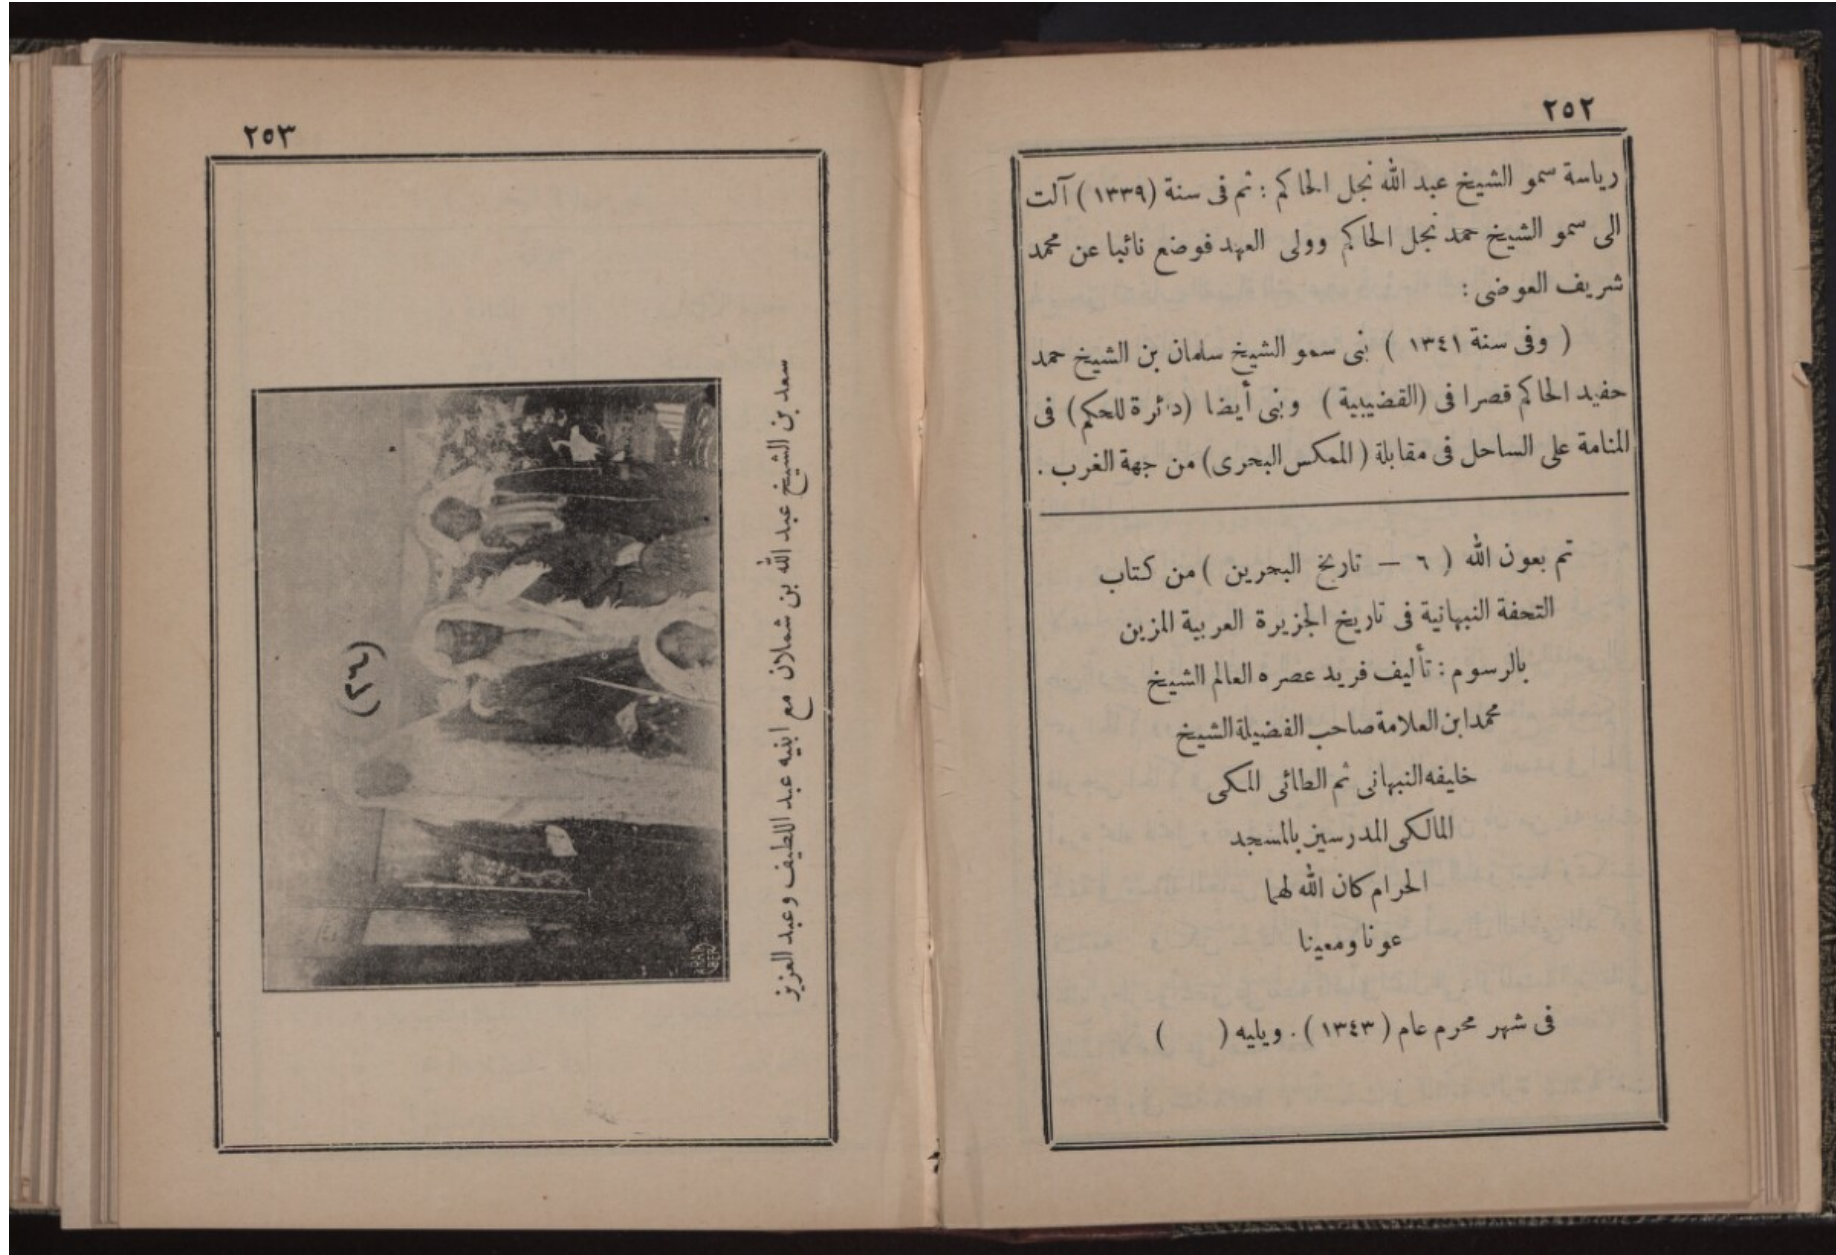 ٢٥٢
رياسة سمو الشيخ عبد الله نجل الحاكم : ثم فى سنة (١٣٣٩) آلت
الى سمو الشيخ حمد نجل الحاكم وولى العهد فوضع نائبا عن محمد
شريف العوضى :
( وفى سنة ١٣٤١ ) بنى سمو الشيخ سلمان بن الشيخ حمد
حفيد الحاكم قصرا فى (القضيبية) وبنى أيضا (دائرة للحكم) فى
المنامة على الساحل فى مقابلة (المكس البحرى) من جهة الغرب .
تم بعون الله ( ٦ — تاريخ البحرين ) من كتاب
التحفة النبهانية فى تاريخ الجزيرة العربية المزين
بالرسوم : تأليف فريد عصره العالم الشيخ
محمد ابن العلامة صاحب الفضيلة الشيخ
خليفه النبهانى ثم الطائى المكى
المالكى المدرسين بالمسجد
الحرام كان الله لهما
عونا ومعينا
فى شهر محرم عام (١٣٤٣) . ويليه ( )
٢٥٣
سعد بن الشيخ عبد الله بن شملان مع ابنيه عبد اللطيف وعبد العزيز
(٢٦)